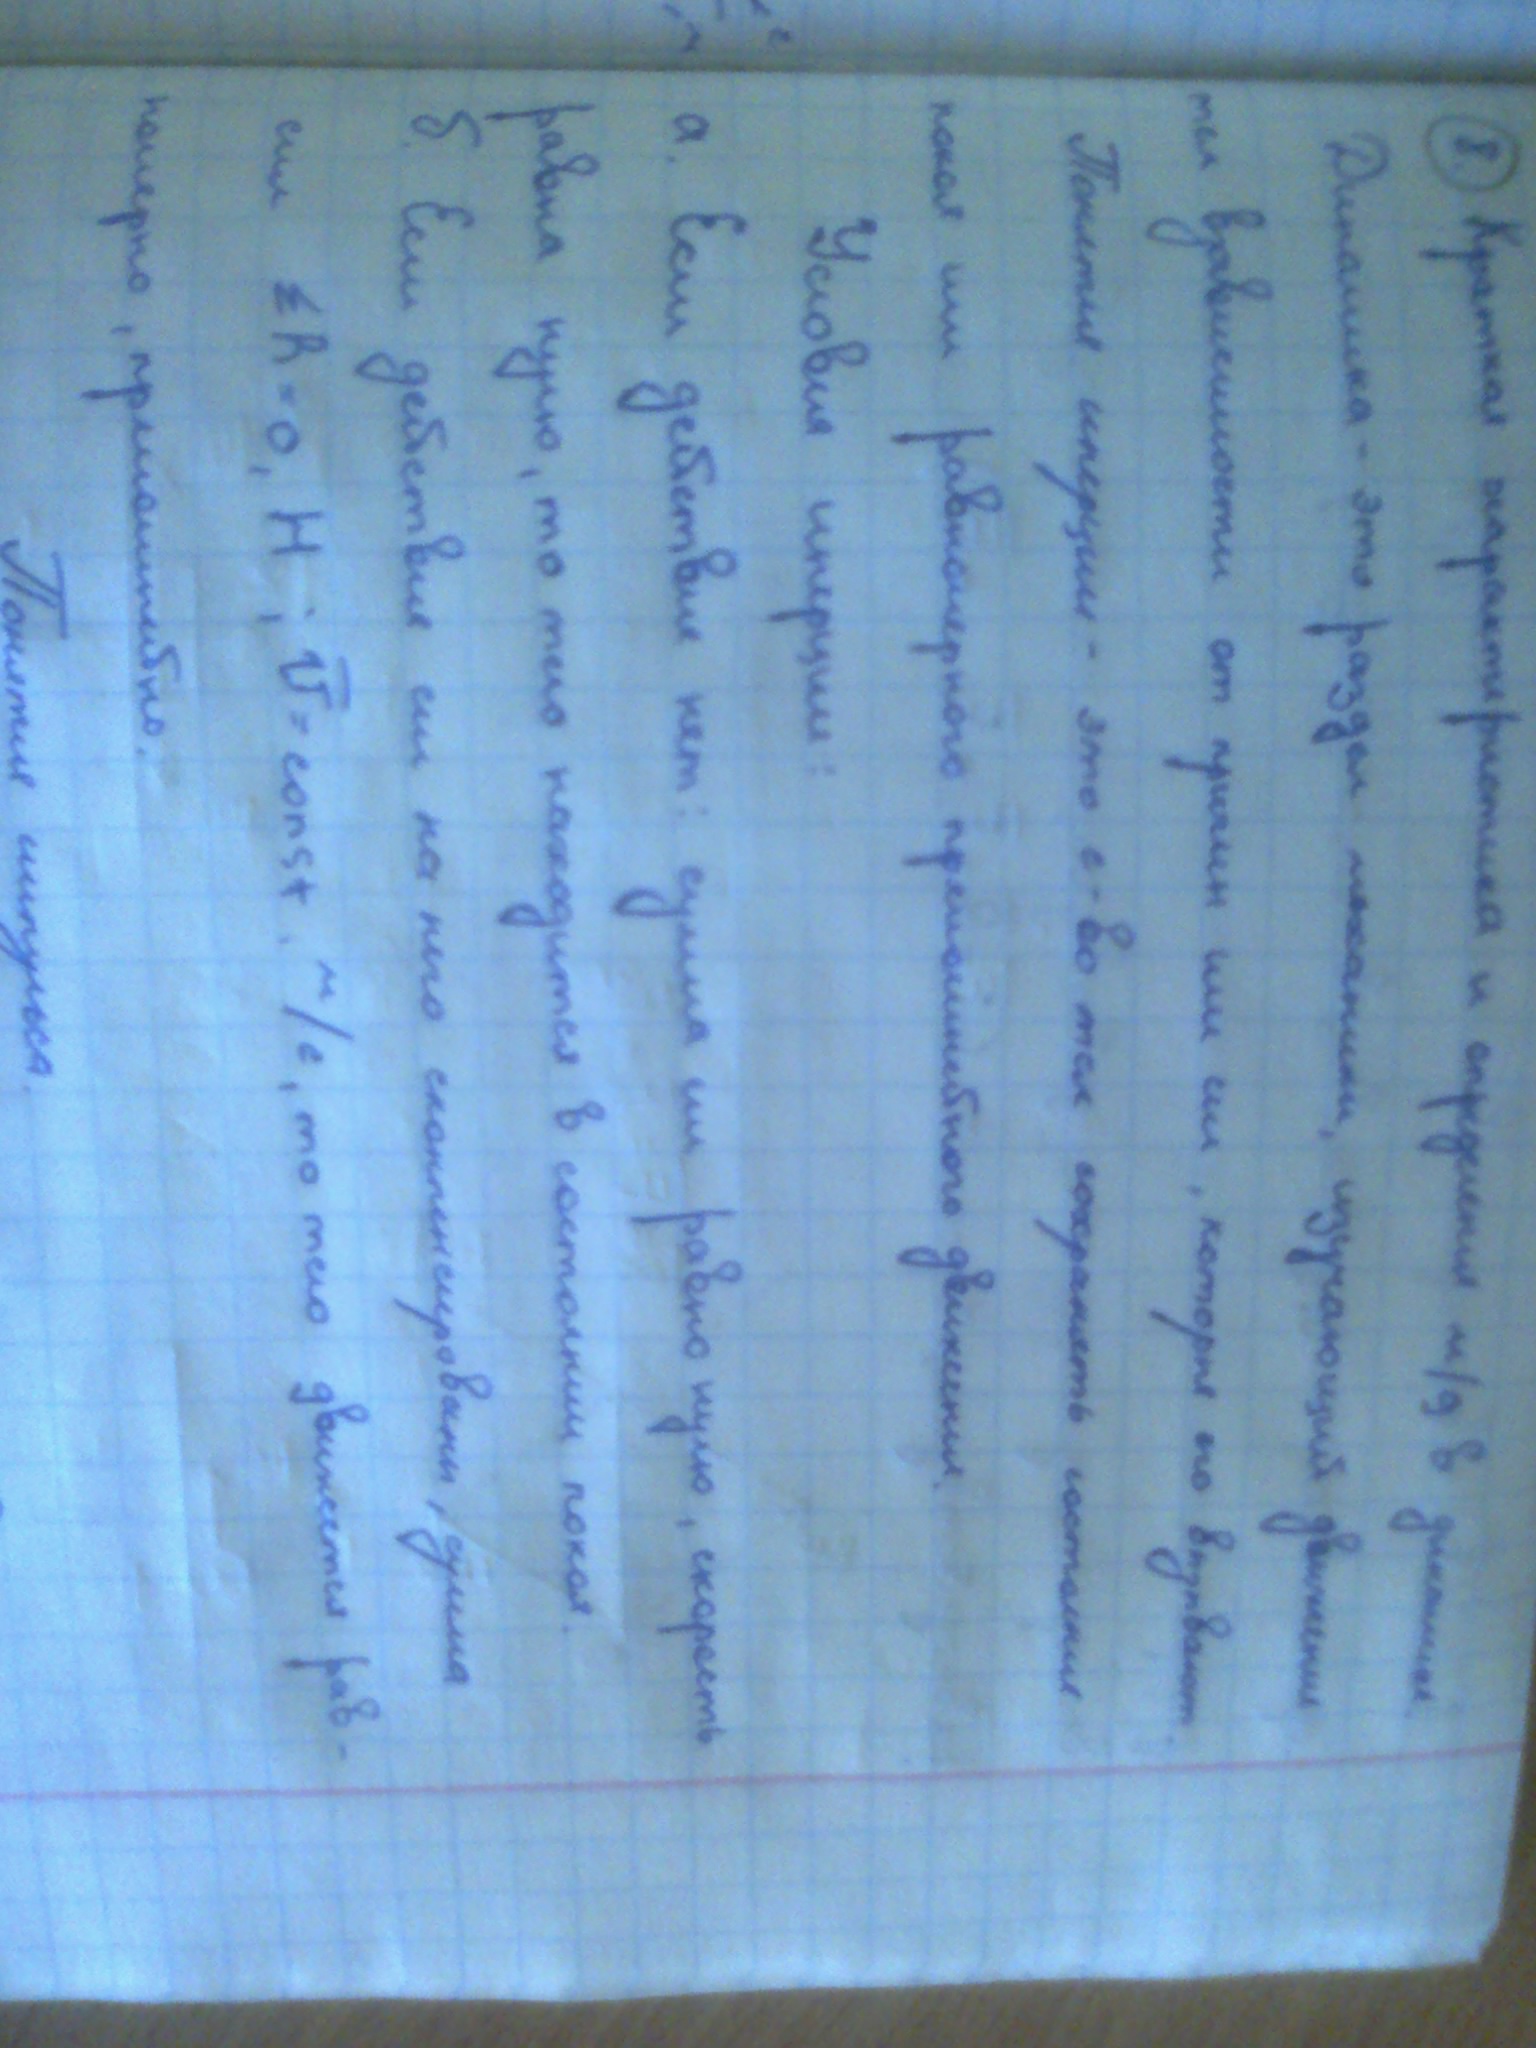 8. Краткая характеристика и определения м/д в динамике.
Динамика - это раздел механики, изучающий движения
тел взависимости от причин или сил, которые его вызывают.
Понятия инерции - это с-во тел сохранять состояния
покоя или равномерного прямолинейного движения.
Условия инерции:
а. Если действия нет: сумма сил равно нулю, скорость
равна нулю, то тело находится в состоянии покоя.
б. Если действия сил на него скомпенсированы, сумма
сил ΣR=0, Н; v̄=const, м/с, то тело движется рав-
номерно, прямолинейно.
Понятия импульса.